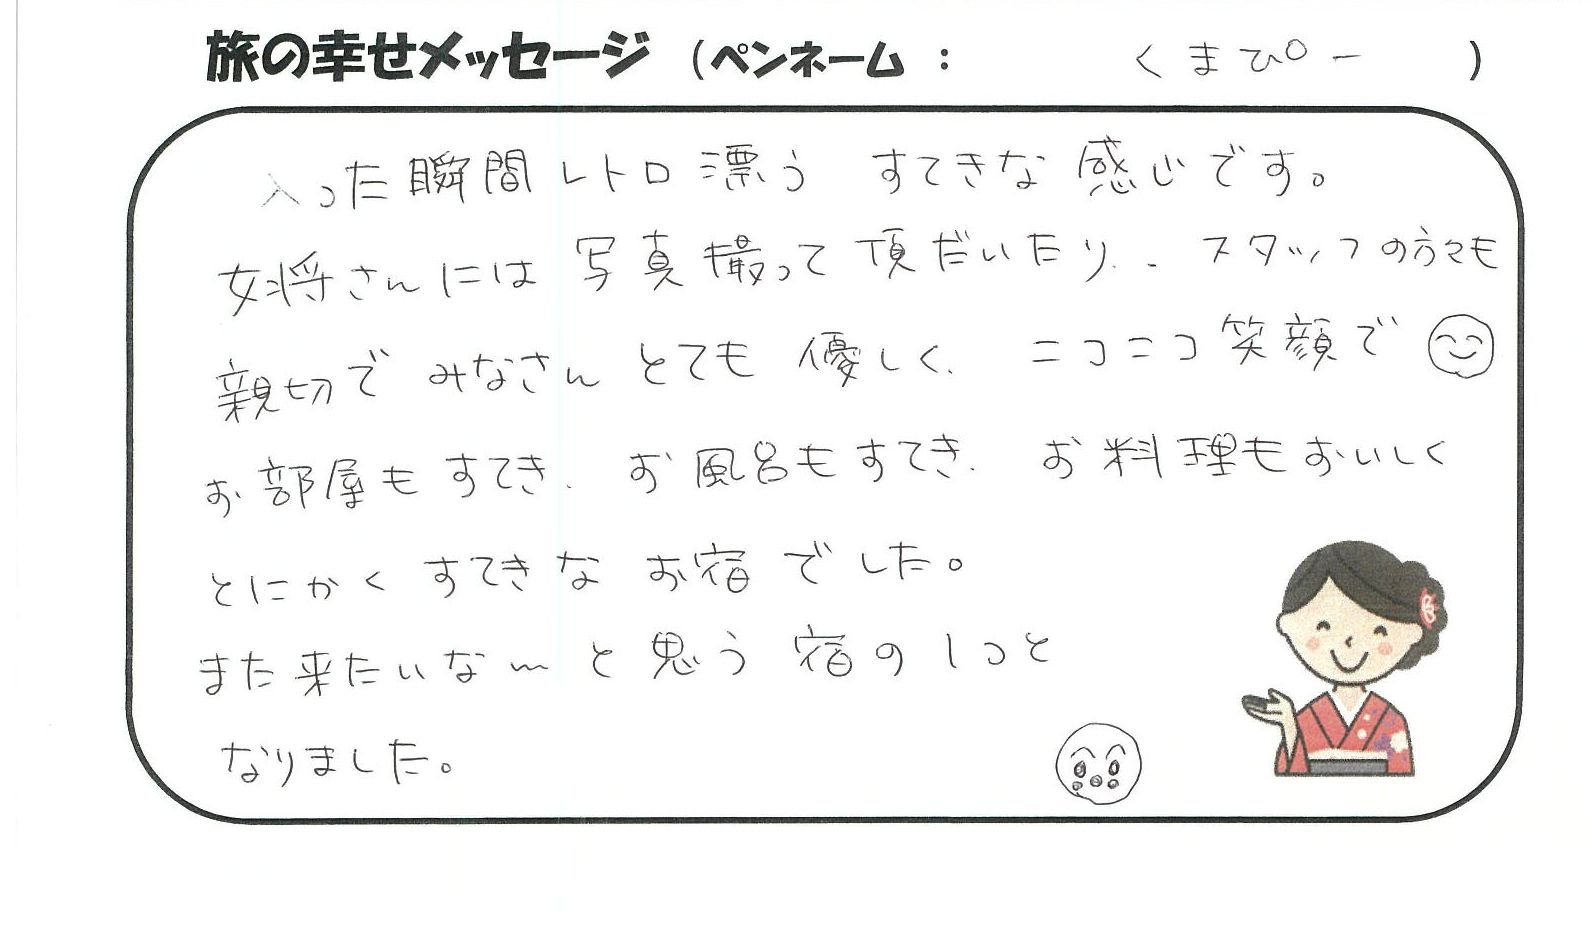 旅の幸せメッセージ (ペンネーム： くまぴー )
入った瞬間レトロ漂う すてきな感じです。
女将さんには写真撮って頂だいたり、スタッフの方々も
親切でみなさんとても優しく、ニコニコ笑顔で
お部屋もすてき、お風呂もすてき、お料理もおいしく
とにかくすてきなお宿でした。
また来たいな～と思う宿の1つと
なりました。